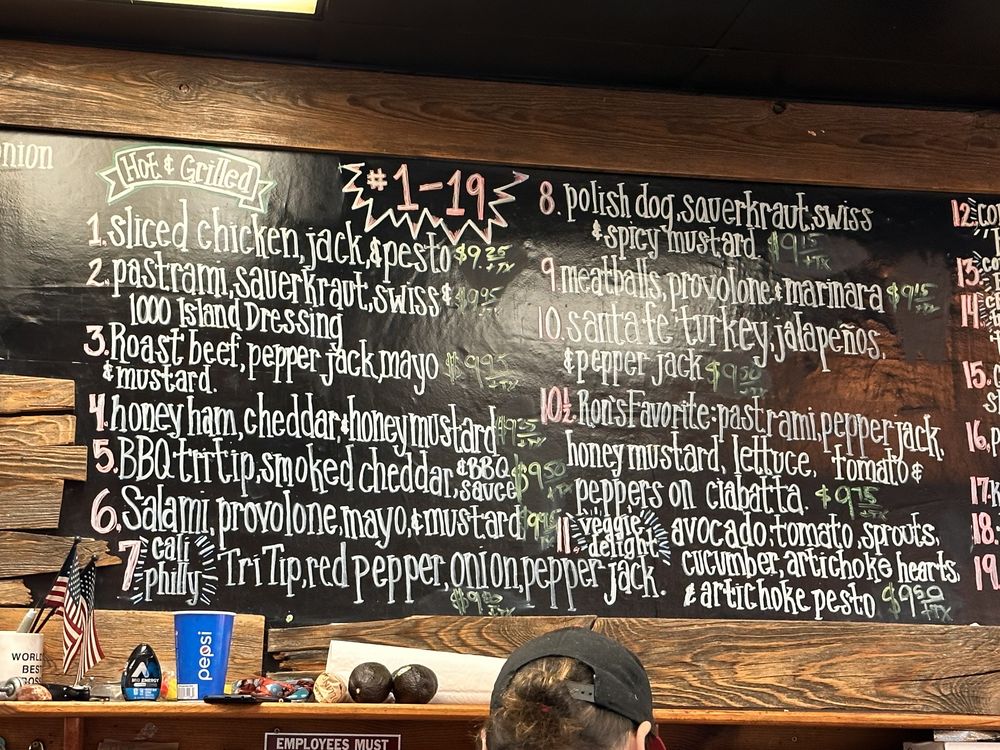 Hot & Grilled
#1-19
1. sliced chicken, jack, & pesto $9.25 +TX
2. pastrami, sauerkraut, swiss & $9.95
1000 Island Dressing
3. Roast beef, pepper jack, mayo
& mustard.
4. honey ham, cheddar, & honey mustard
5. BBQ tri tip, smoked cheddar, & BBQ sauce $9.50
6. Salami, provolone, mayo, & mustard
7 cali philly Tri Tip, red pepper, onion, pepper jack.
8. polish dog, sauerkraut, swiss
& spicy mustard. $9.15 +TX
9. meatballs, provolone & marinara $9.15 +TX
10. santa fe turkey, jalapeños,
& pepper jack $9.50
10½ Ron's Favorite: pastrami, pepper jack,
honey mustard, lettuce, tomato &
peppers on ciabatta. $9.75
11. veggie delight avocado, tomato, sprouts,
cucumber, artichoke hearts,
& artichoke pesto $9.50 +TX
12.
13.
14.
15.
16.
17.
18.
19
WORL
BES
MIO ENERGY
pepsi
EMPLOYEES MUST